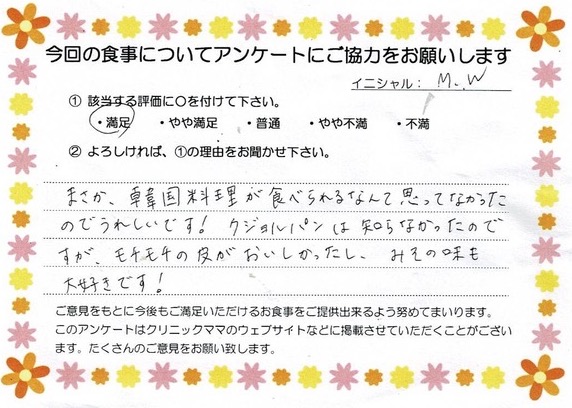 今回の食事についてアンケートにご協力をお願いします
イニシャル： M.W
① 該当する評価に○を付けて下さい。
・満足 ・やや満足 ・普通 ・やや不満 ・不満
② よろしければ、①の理由をお聞かせ下さい。
まさか、韓国料理が食べられるなんて思ってなかった
のでうれしいです！ クジョルパンは知らなかったので
すが、モチモチの皮がおいしかったし、みその味も
大好きです！
ご意見をもとに今後もご満足いただけるお食事をご提供出来るよう努めてまいります。
このアンケートはクリニックママのウェブサイトなどに掲載させていただくことがござい
ます。たくさんのご意見をお願い致します。